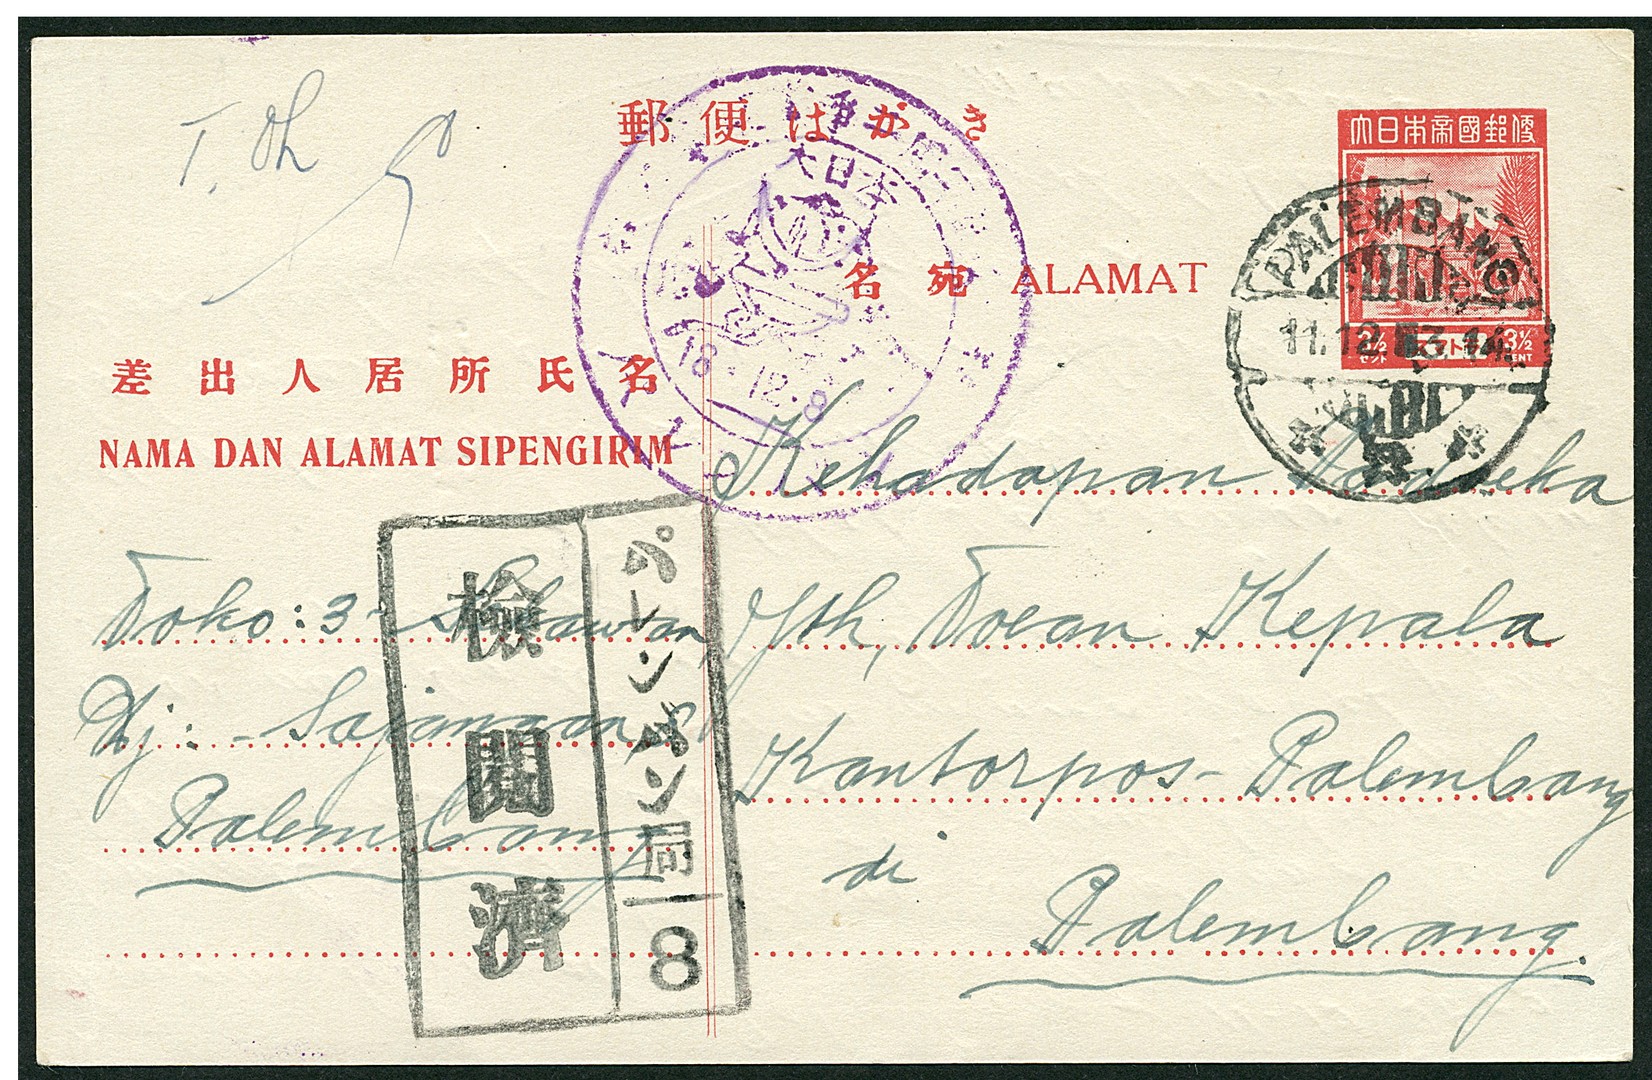 T. Oh
郵便はがき
大日本帝國郵便
大日本
18.12.8
名宛 ALAMAT
PALEMBANG
11.12.03.14
3½ スマトラ 3½
セント CENT
差出人居所氏名
NAMA DAN ALAMAT SIPENGIRIM
Kehadapan
Toko: 3-
Jth, Toean Kepala
Kantorpos- Palembang
Palembang
di
Palembang.
検閲済
パレンバン局
8